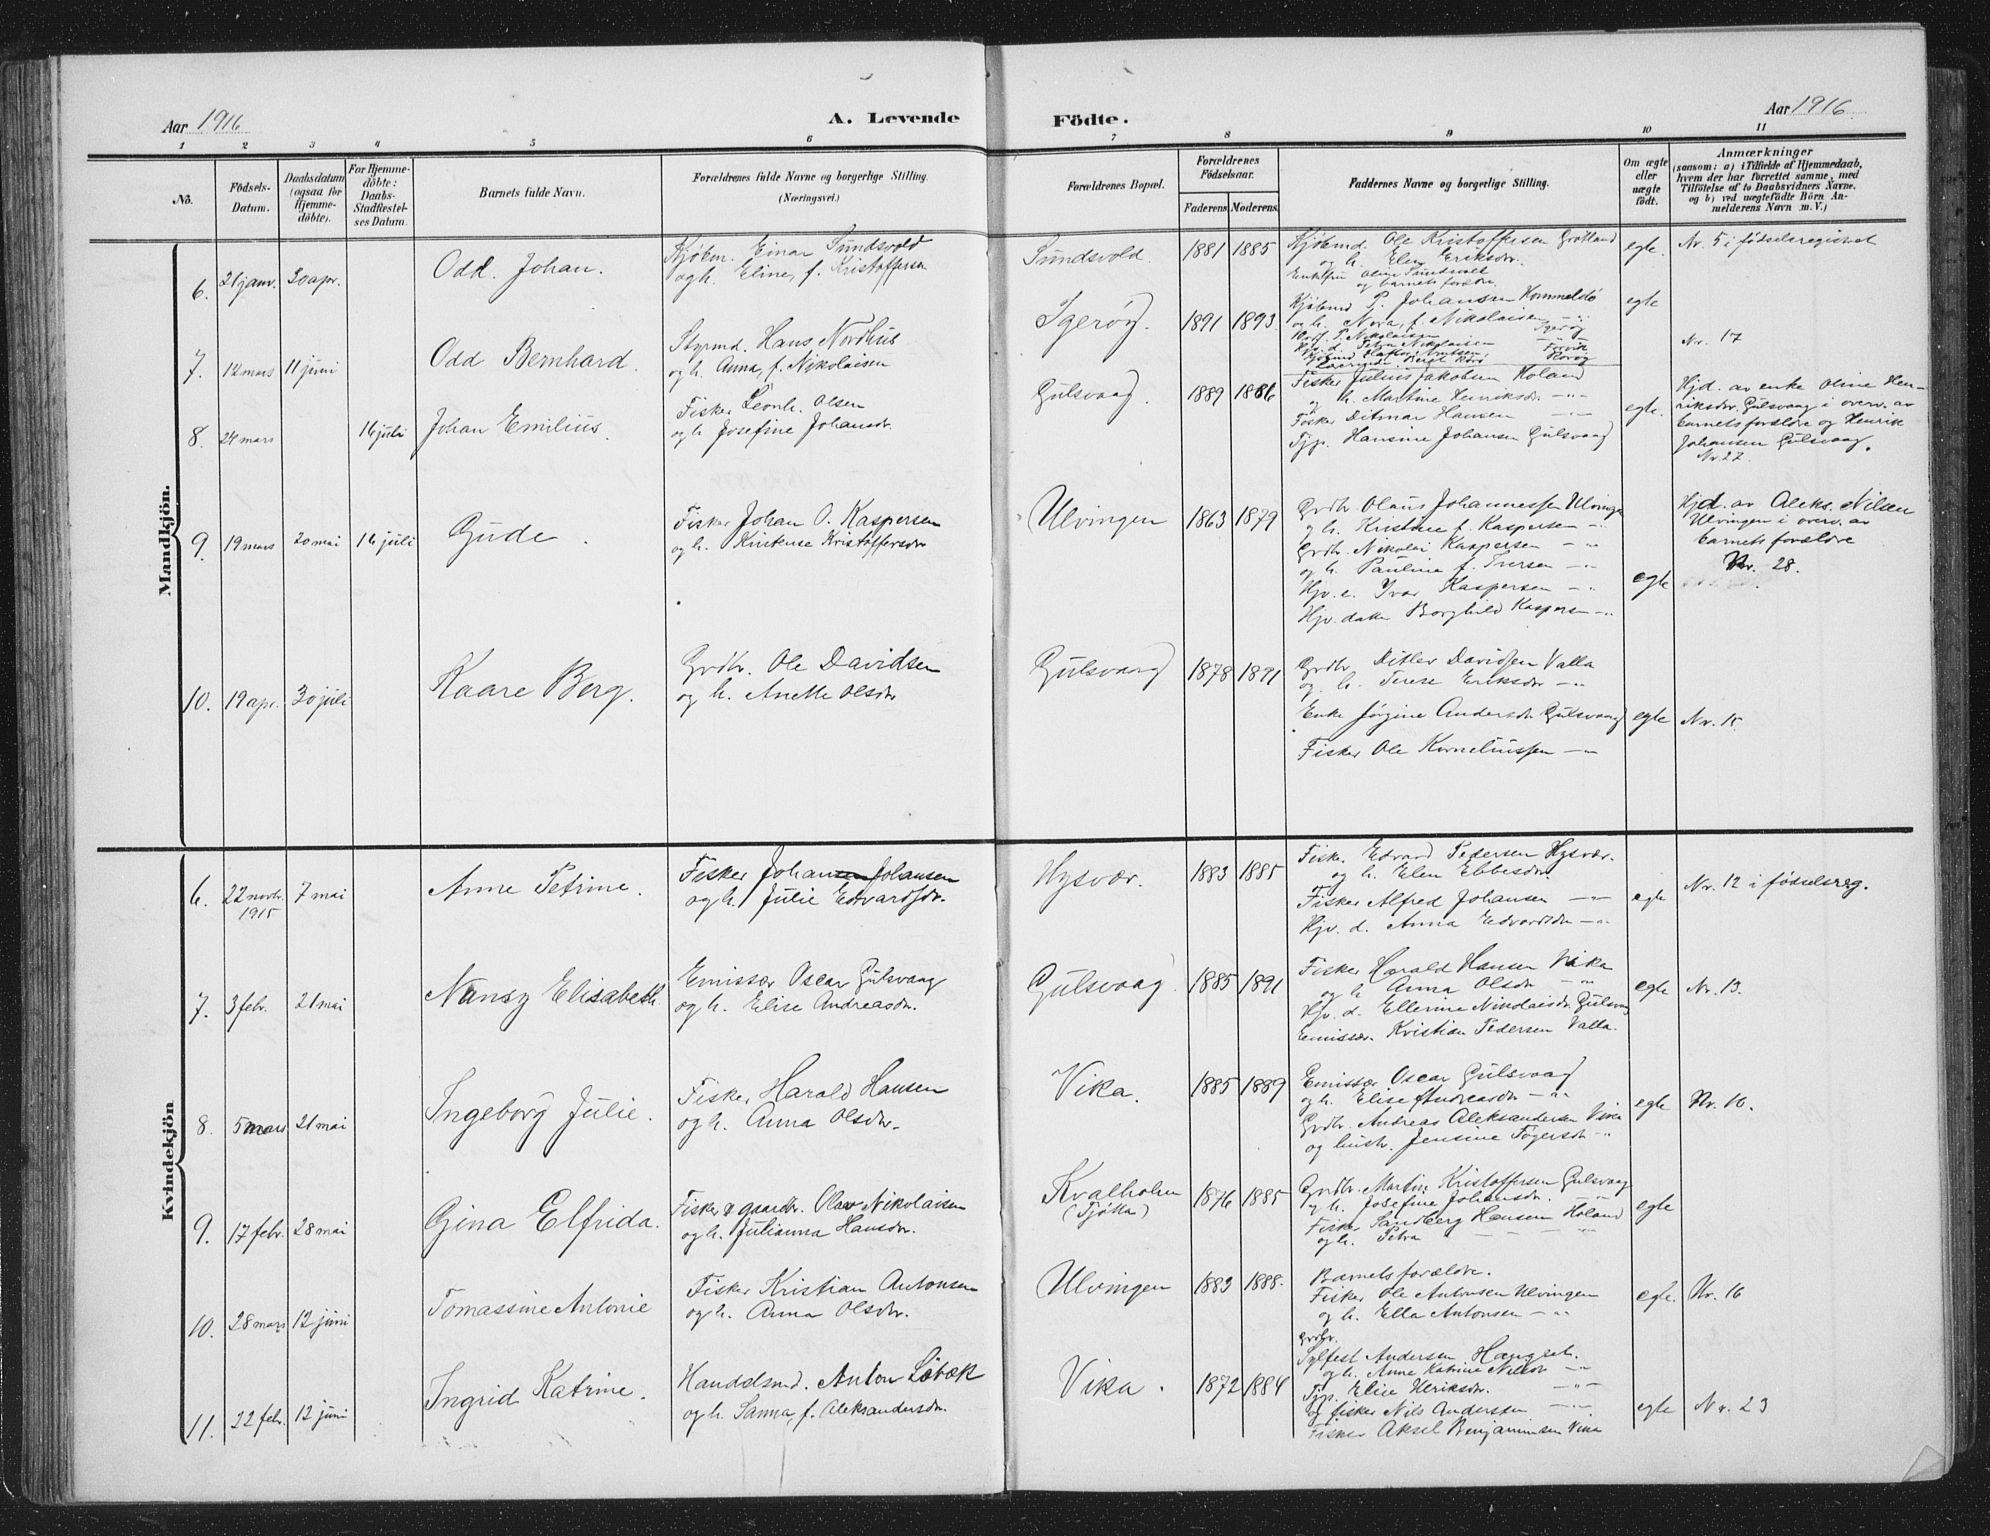 Aar 1916
A. Levende Födte.
Aar 1916
1 2 3 4 5 6 7 8 9 10 11
No.
Födsels-Datum.
Daabsdatum (ogsaa for Hjemme-döbte).
For Hjemme-döbte: Daabs-Stadfæstel-ses Datum.
Barnets fulde Navn.
Forældrenes fulde Navne og borgerlige Stilling. (Næringsvei.)
Forældrenes Bopæl.
Forældrenes Födselsaar.
Faderens Moderens
Faddernes Navne og borgerlige Stilling.
Om ægte eller uægte födt.
Anmærkninger
(saasom: a) i Tilfælde af Hjemmedaab, hvem der har forrettet samme, med Tilföielse af to Daabsvidners Navne. og b) ved uægtefödte Börn An-melderens Navn m. V.)
Mandkjön.
6. 21 janv. 30 apr. Odd Johan. Kjøbm. Einar Sundsvold
og h. Eline, f. Kristoffersen
Sundsvold. 1881 1885 Kjøbmd. Ole Kristoffersen Grøtland
og h. Elen Eriksdr.
Enkefru Oline Sundsvold
og barnets forældre
egte. Nr. 5 i fødselsregistret
7. 12 mars 11 juni Odd Bernhard. Styrmd. Hans Nordhus
og h. Anna, f. Nikolaisen
Igerøy. 1891 1893 Kjøbmd P. Johansen Hommelstø
og h. Nora, f. Nikolaisen
egte Nr. 17
8. 24 mars 16 juli Johan Emilius. Fisker Leonh. Olsen
og h. Josefine Johansdr.
Gulsvaag. 1889 1886 Fisker Julius Jakobsen Holand
og h. Martine Henriksdr. -"-
Fisker Ditmar Hansen -"-
Tjp. Hansine Johansen Gulsvaag
egte. Hjd. av enke Oline Hen-
riksdr. Gulsvaag i overv. av
barnets forældre og Henrik
Johansen Gulsvaag.
Nr. 27
9. 19 mars 20 mai 16 juli Gude. Fisker Johan O. Kaspersen
og h. Kristoffersdr
Ulvingen 1863 1879 Grdbr. Olaus Johannessen Ulvingen
og h. Kristine f. Kaspersen -"-
Grdbr. Nikolai Kaspersen -"-
og h. Pauline f. Iversen -"-
Hjv. s. Ivar Kaspersen -"-
Hjv. datter Borghild Kaspersen -"-
egte Hjd. av Aleks. Nilsen
Ulvingen i overv. av
barnets forældre
Nr. 28.
10. 19 apr. 30 juli Kaare Berg. Grdbr. Ole Davidsen
og h. Anette Olsdr
Gulsvaag 1878 1891 Grdbr. Ditlev Davidsen Valla
og h. Terese Eriksdr -"-
Enke Jørgine Andersdr. Gulsvaag
Fisker Ole Korneliussen -"-
egte Nr. 15
Kvindekjön
6. 22 novbr. 1915 7 mai Anne Petrine. Fisker Johan Johansen
og h. Julie Edvardsdr.
Hysvær. 1883 1885 Fisker Edvard Pedersen Hysvær.
og h. Elen Ebbesdr.
Fisker Alfred Johansen -"-
Hjv. d. Anna Edvardsdr -"-
egte Nr. 12 i fødselsreg.
7. 3 febr. 21 mai Nansy Elisabeth. Emissær Oscar Gulsvaag
og h. Elise Andreasdr.
Gulsvaag 1885 1891 Fisker Harald Hansen Vika
og h. Anna Olsdr -"-
Hjv. d. Ellerine Nikolaisdr. Gulsvaag
Emissær. Kristian Pedersen Valla.
egte Nr. 13.
8. 5 mars 21 mai Ingeborg Julie. Fisker Harald Hansen
og h. Anna Olsdr.
Vika. 1885 1889 Emissær Oscar Gulsvaag
og h. Elise Andreasdr -"-
Grdbr. Andreas Aleksandersen Vika
og hustr. Jensine Togersdr -"-
egte Nr. 10.
9. 17 febr. 28 mai Gina Elfrida. Fisker & gaardbr. Olav Nikolaisen
og h. Julianna Hansdr.
Kvalholm
(Tjøtta)
1876 1885 Grdbr. Martin Kristoffersen Gulsvaag
og h. Josefine Johansdr.
Fisker Sandberg Hansen Holand
og h. Petra
egte
10. 28 mars 12 juni Tomassine Antonie Fisker Kristian Antonsen
og h. Anna Olsdr.
Ulvingen 1883 1888. Barnets forældre.
Fisker Ole Antonsen Ulvingen
og h. Ella Antonsen -"-
egte. Nr. 16
11. 22 febr. 12 juni Ingrid Katrine. Handelsmd. Anton Løbæk
og h. Sanna, f. Aleksandersdr.
Vika. 1872 1884 Grdbr.
Sylfest Andersen Haugset.
og h. Anne Katrine Nilsdr -"-
Tjp. Elise Ulriksdr. -"-
og fisker Nils Andersen -"-
Fisker Aksel Benjaminsen Vika
egte Nr. 23